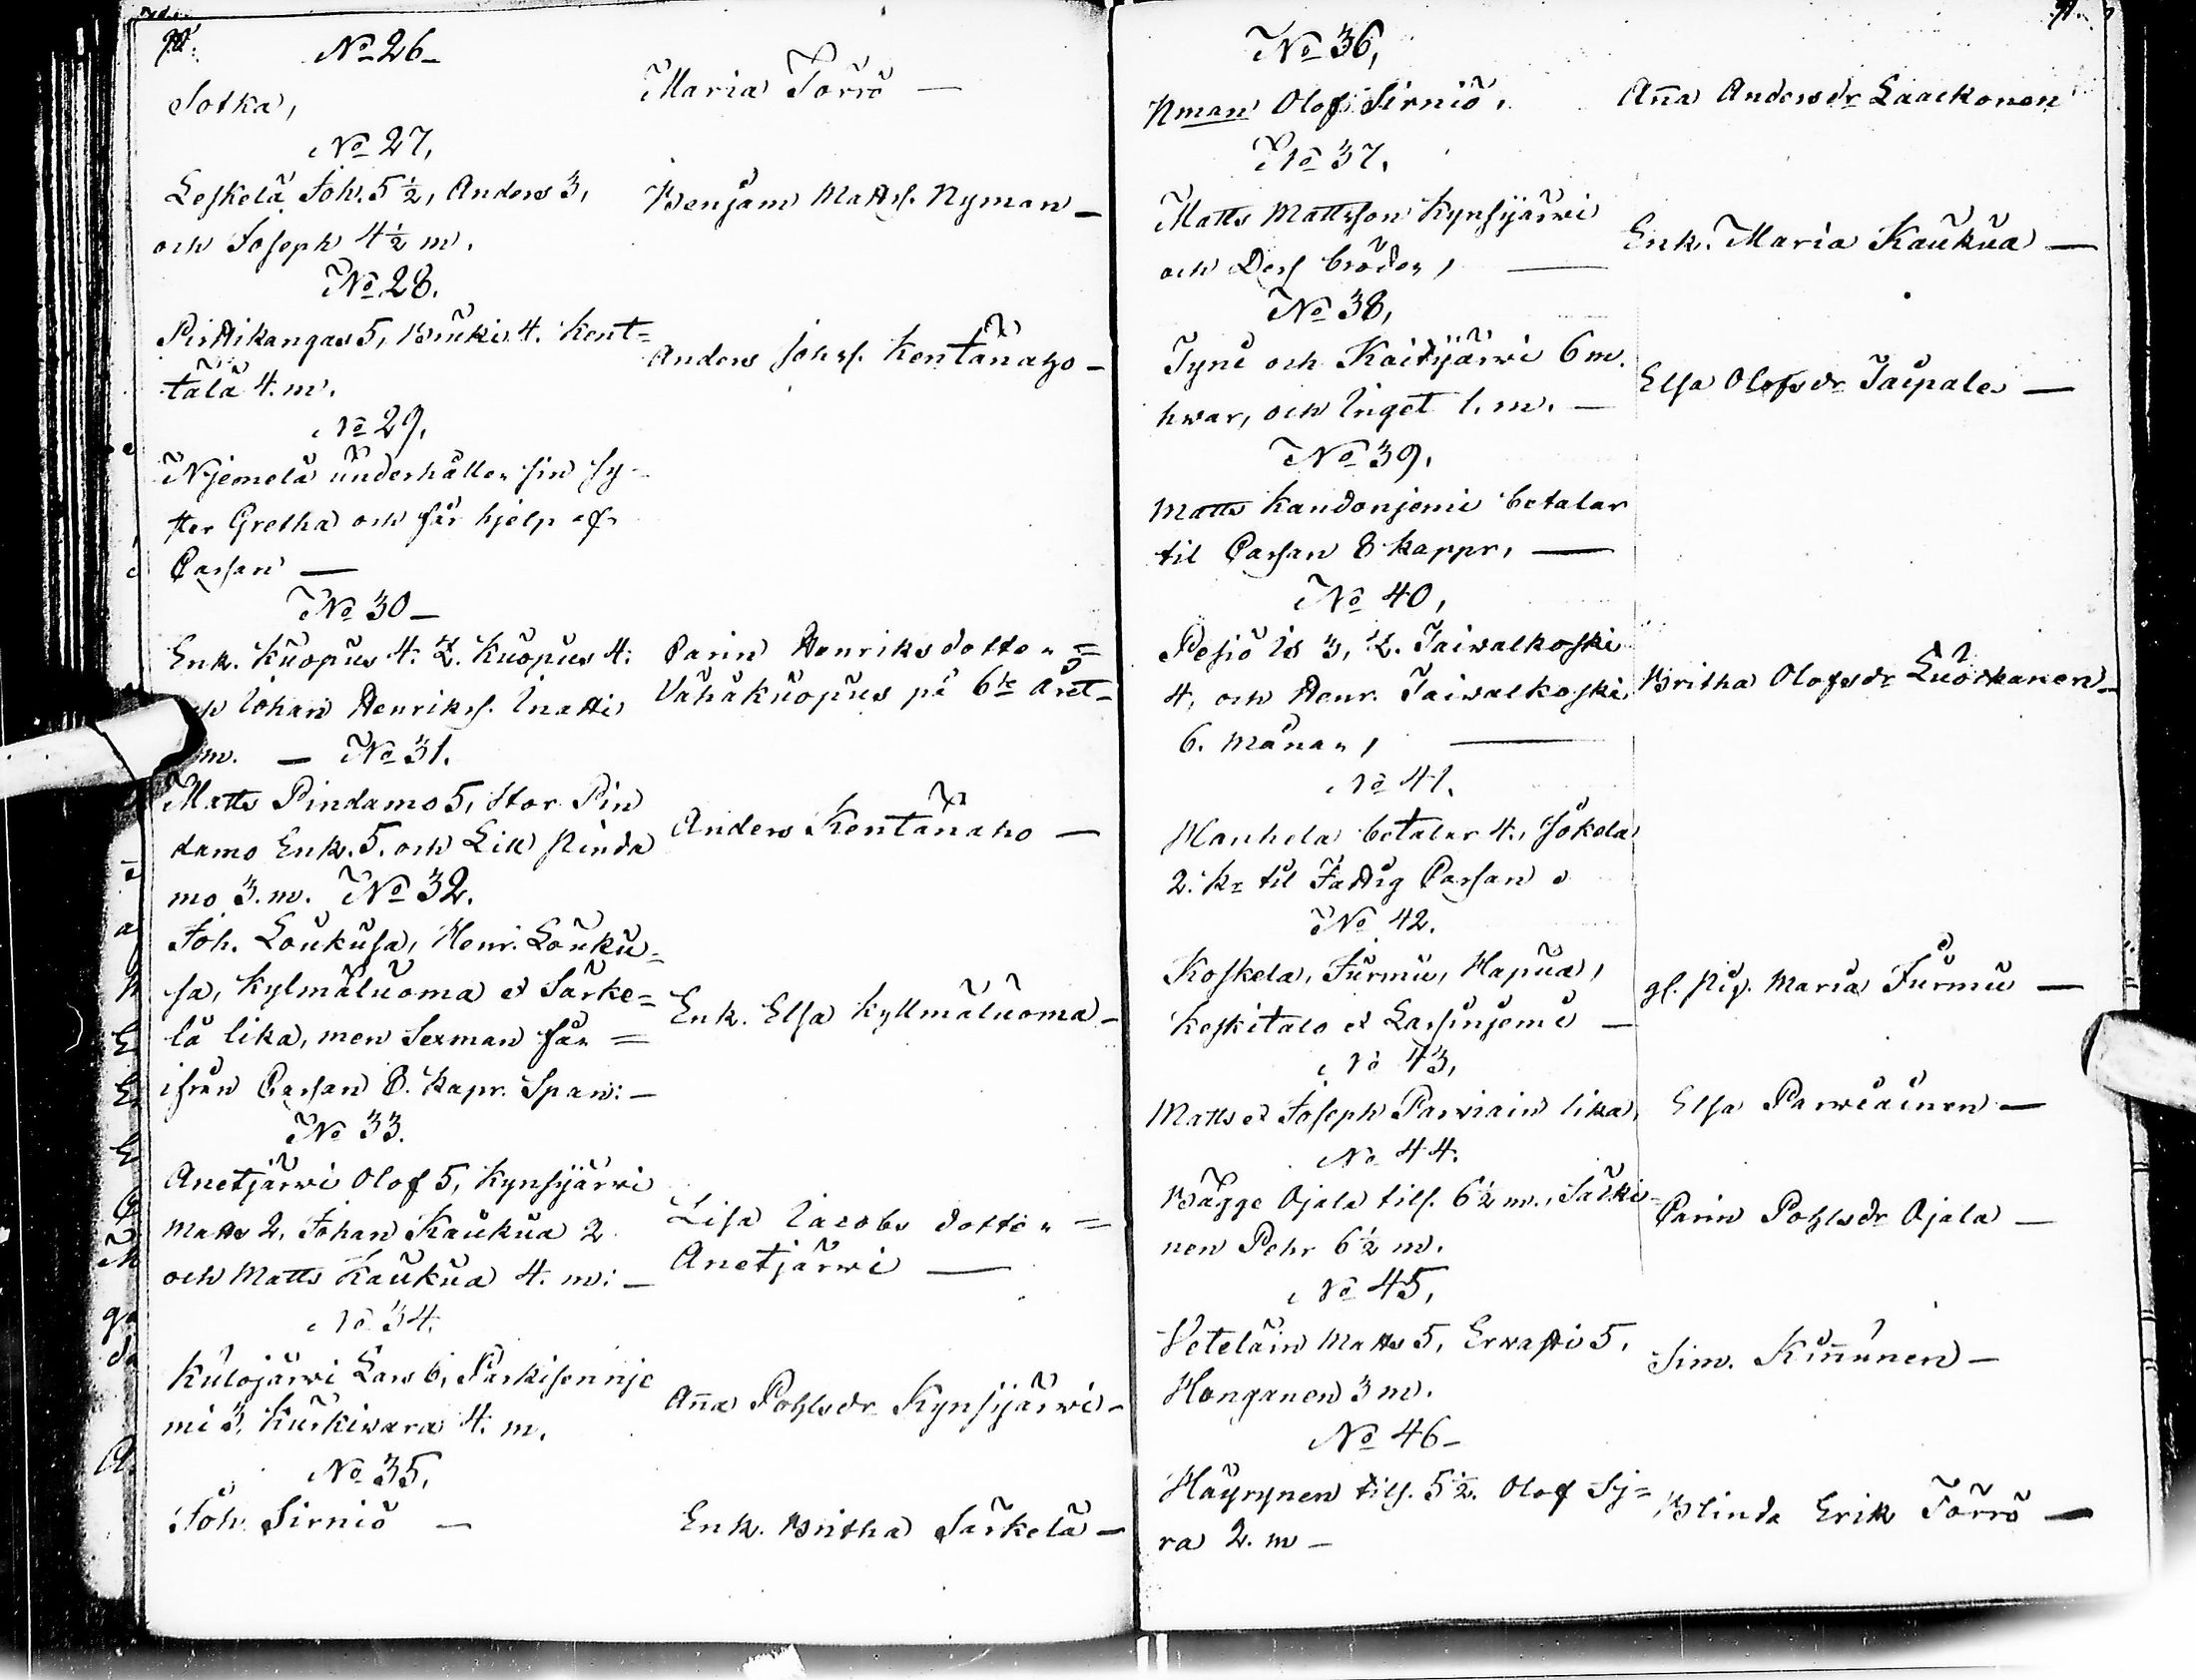 90.
No 26-
Sotka,
Maria Törrö —
No 27,
Leskelä Joh. 5½, Anders 3,
och Joseph 4½ m.
Benjam Mattss. Nyman —
No 28.
Pirttikangas 5, Buuki 4. Kent=
tälä 4. m.
Anders Johss. Kentänaho —
No 29,
Njemelä underhåller sin sy-
ster Gretha och får hjelp af
Cassan —
No 30 —
Enk. Kuopus 4. L. Kuopus 4.
Johan Henrikss. Inatti
m. —
Carin Henriksdotter =
Vähäkuopus på 6te året —
No 31.
Matts Pindamo 5, Stor Pin
damo Enk. 5. och Lill Pinda
mo 3. m.
Anders Kentänaho —
No 32.
Joh. Loukusa, Henr. Louku=
sa, Kylmäluoma et Särke=
lä lika, men Sexman får =
ifrån Cassan 8. kapr. Span: —
Enk. Elsa Kyllmäluoma —
No 33.
Anetjärwi Olof 5, Kynsijärwi
Matts 2, Johan Kaukua 2
och Matts Kaukua 4. m: —
Lisa Jacobs dotter =
Anetjärwi —
No 34.
Kulojärwi Lars 6, Parkisennje
mi 3, Kurkiwara 4. m.
Anna Pohlsdr Kynsijärwi —
No 35,
Joh Sirniö —
Enk. Britha Särkelä —
91.
No 36,
Nman Olof Sirniö,
Anna Andersdr Laackonen
No 37.
Matts Mattsson Kynsijärwi
och Dess bröder, —
Enk. Maria Kaukua —
No 38,
Tyni och Kaitijärwi 6 m.
hwar, och Inget 1. m. —
Elsa Olofsdr Taipale —
No 39,
Matts Kandonjemi betalar
til Cassan 8 kappr, —
No 40,
Pesiö Is 3, L. Taiwalkoski
4, och Henr. Taiwalkoski
6. månar, —
Britha Olofsdr Luokkanen —
No 41.
Manhela betalar 4., Jokela
2. kr til Fattig Cassan
No 42.
Koskela, Jurmu, Hapua,
Keskitalo et Lassinjemi —
gl. pig. Maria Jurmu —
No 43,
Matts et Joseph Parwiain lika,
Elsa Parwiainen —
No 44.
Bägge Ojala tills. 6½ m., Särki=
nen Pehr 6½ m.
Carin Pohlsdr Ojala —
No 45,
Veteläin Matts 5, Erwasti 5,
Honganen 3 m.
Sim. Kinnunen —
No 46 —
Häyrynen tills. 5½. Olof Sy=
rä 2. m —
Blinda Erik Törrö —